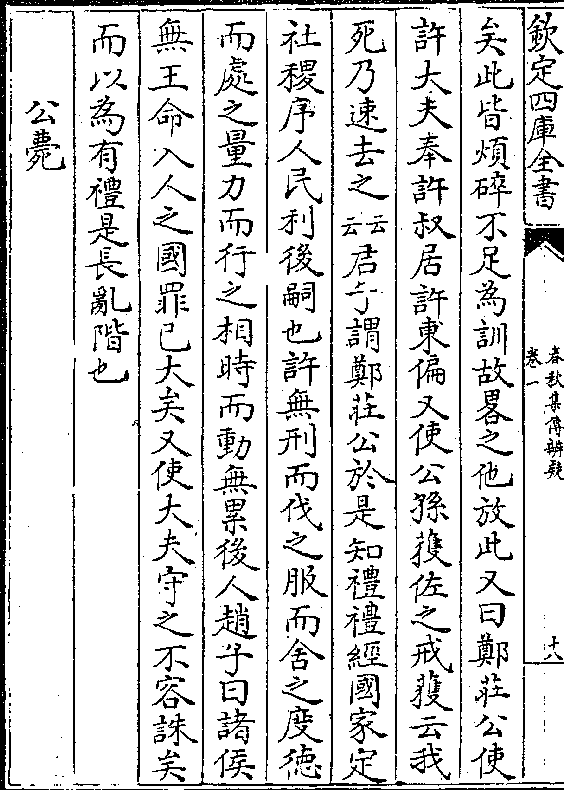 欽定四庫全書
春秋集傳辨疑
卷一
十八
矣此皆煩碎不足為訓故畧之他放此又曰鄭莊公使
許大夫奉許叔居許東偏又使公孫獲佐之戒獲云我
死乃速去之云云君子謂鄭莊公於是知禮禮經國家定
社稷序人民利後嗣也許無刑而伐之服而舍之度德
而處之量力而行之相時而動無累後人趙子曰諸侯
無王命入人之國罪已大矣又使大夫守之不容誅矣
而以為有禮是長亂階也
公薨